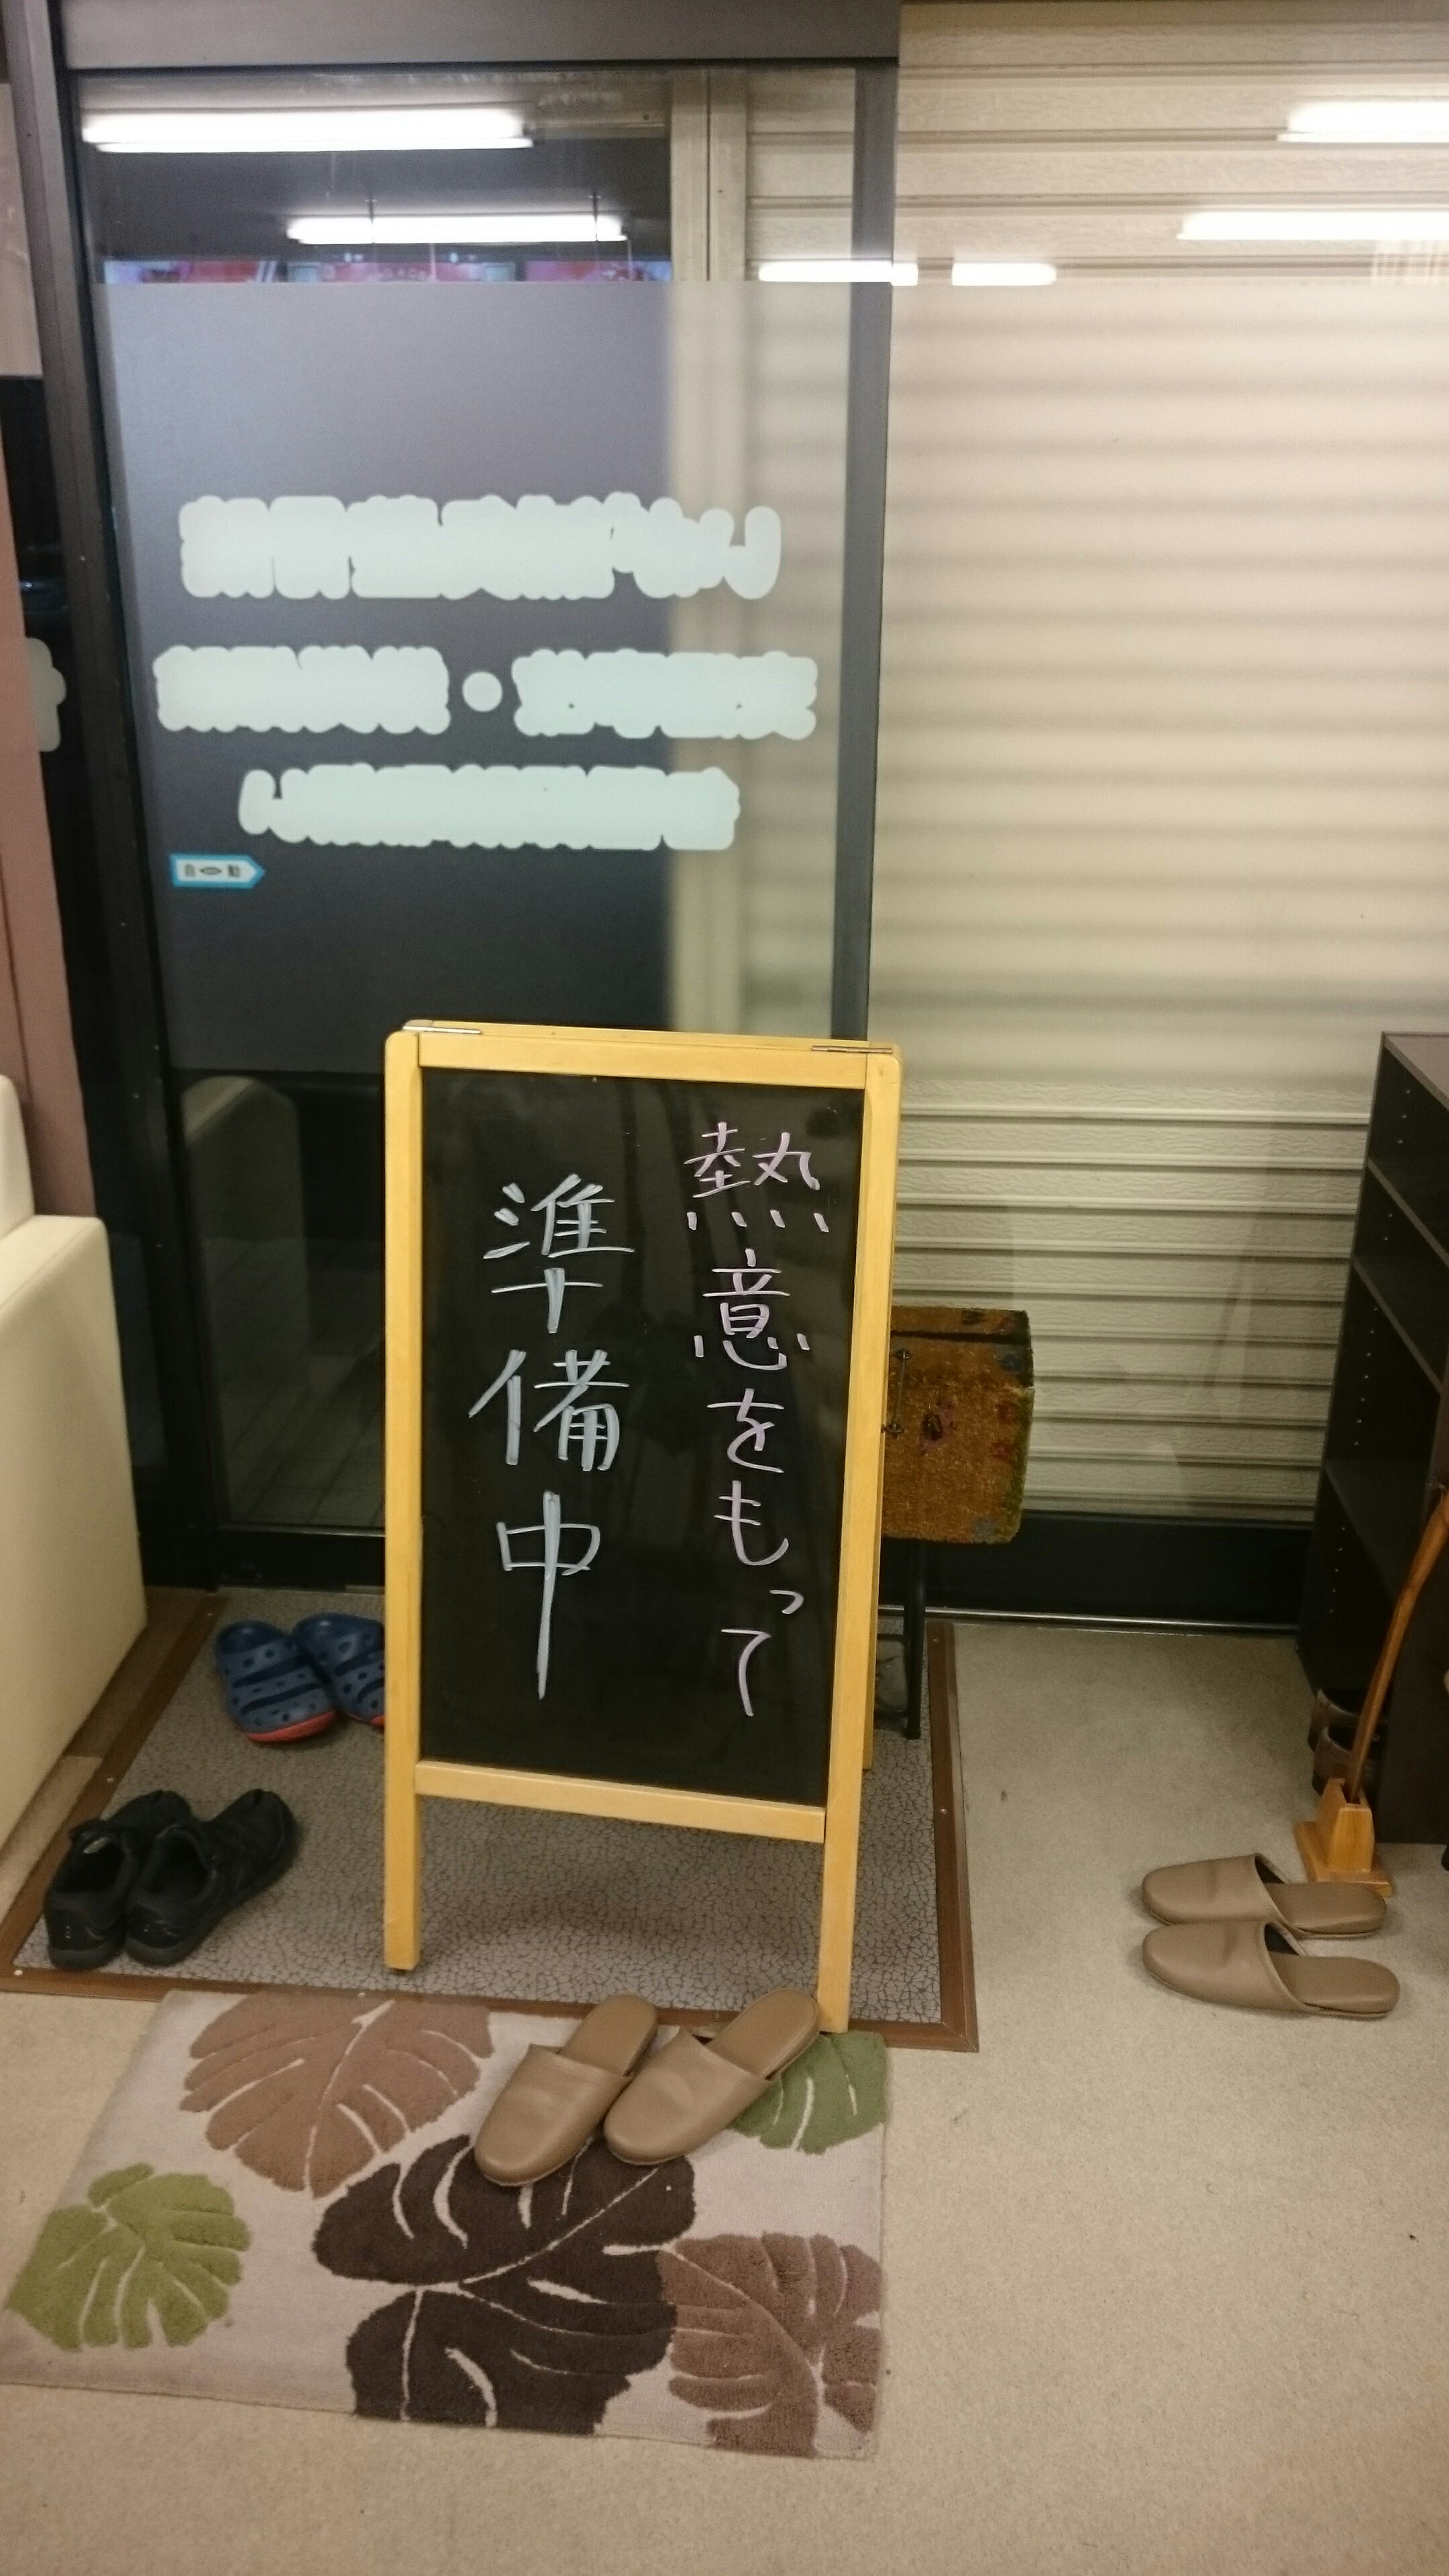 熱意をもって
準備中
自動